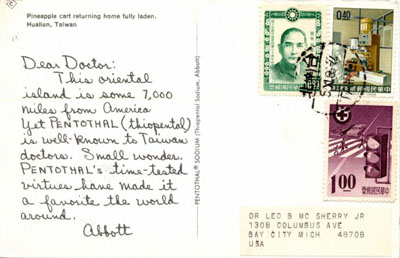 Pineapple cart returning home fully laden.
Hualien, Taiwan
Dear Doctor:
This oriental
island is some 7,000
miles from America
Yet PENTOTHAL (thiopental)
is well-known to Taiwan
doctors. Small wonder.
PENTOTHAL's time-tested
virtues have made it
a favorite the world
around.
Abbott
PENTOTHAL® SODIUM (Thiopental Sodium, Abbott)
0.40
1.00
中華民國郵票
DR LEO B MC SHERRY JR
1308 COLUMBUS AVE
BAY CITY MICH 48708
USA